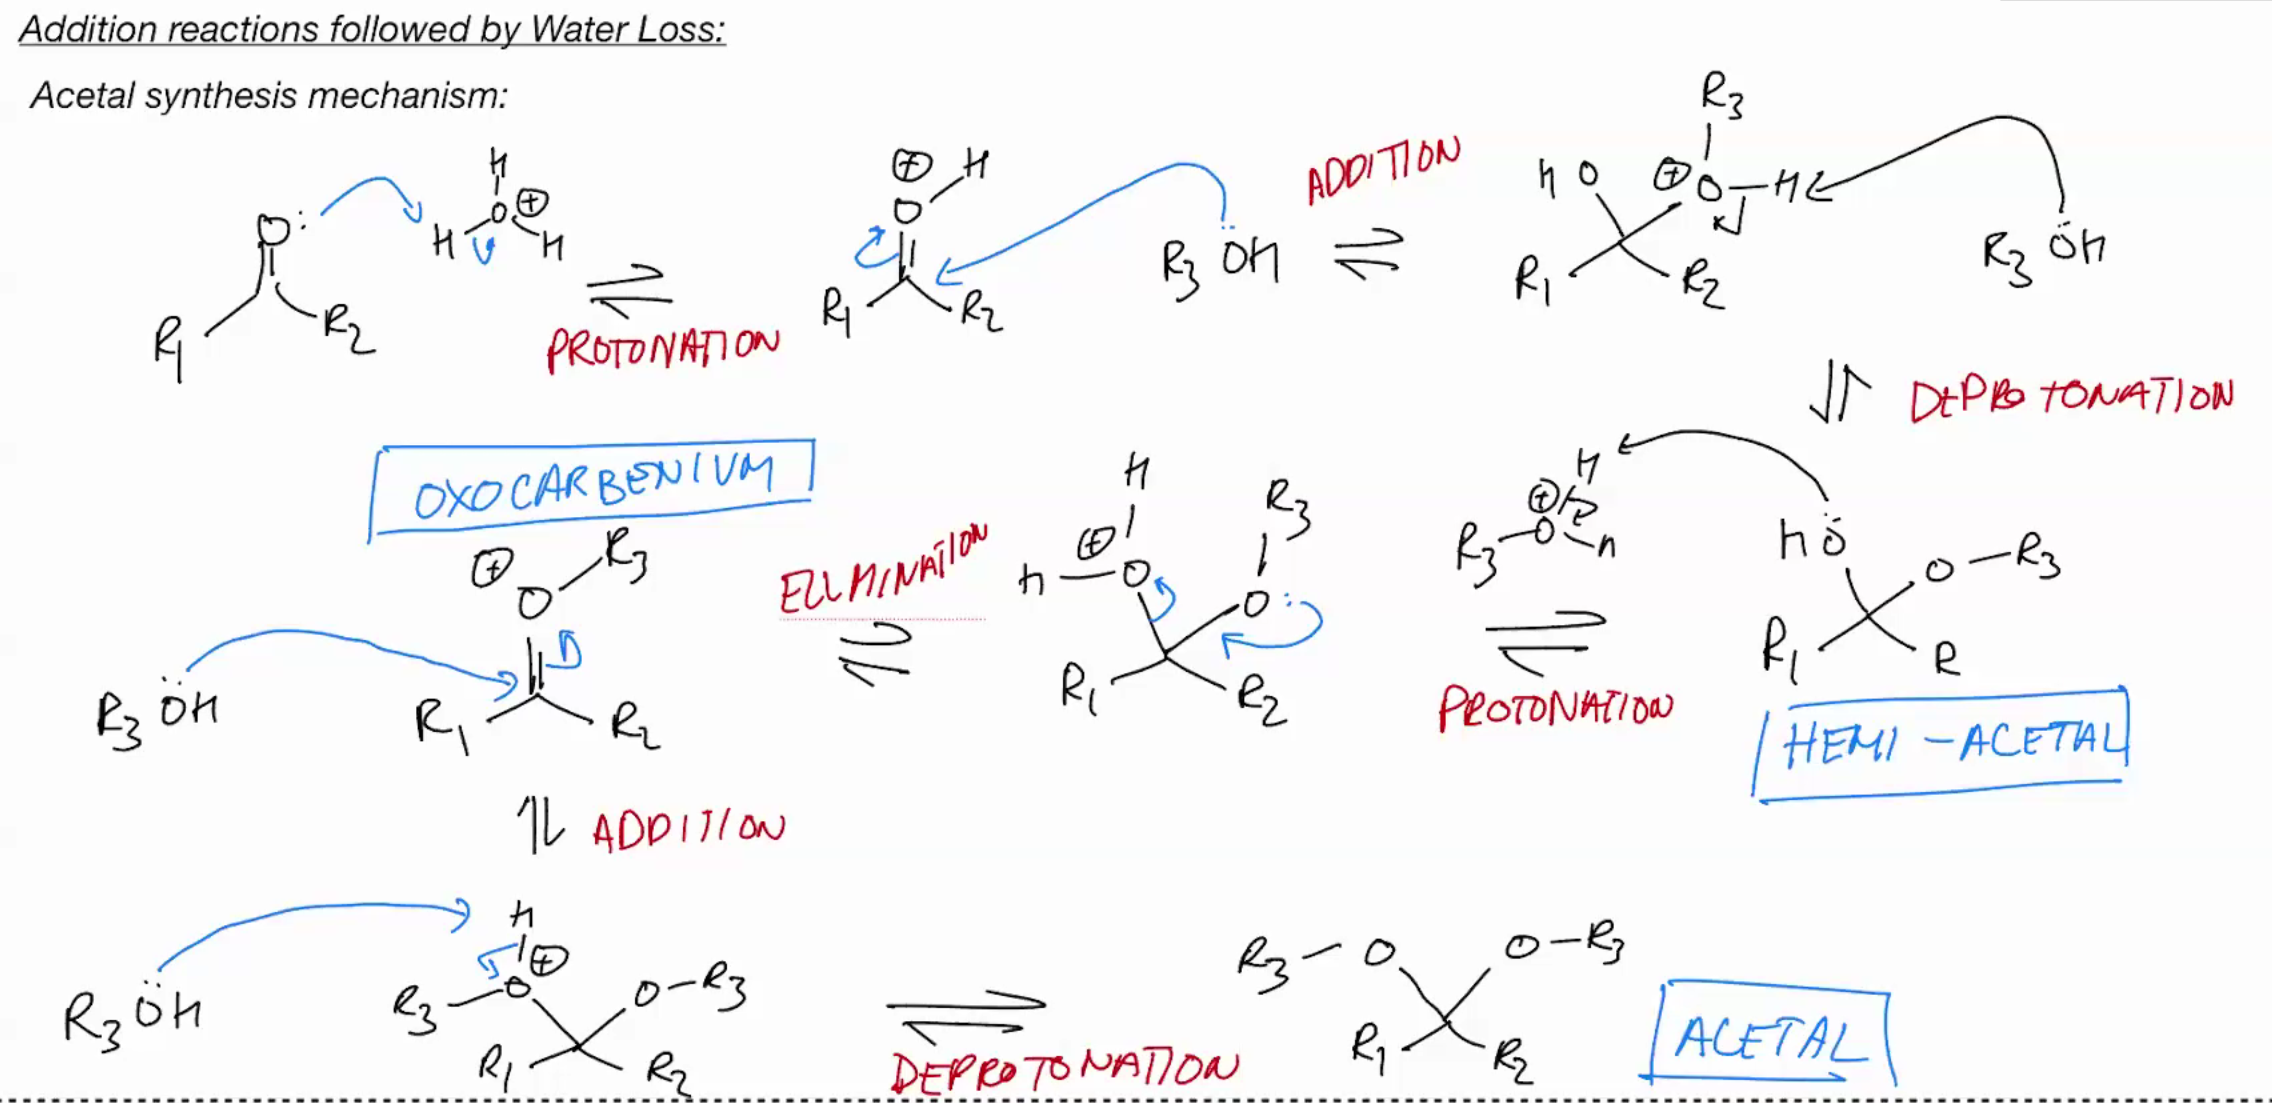 Addition reactions followed by Water Loss:
Acetal synthesis mechanism:
O: R1 R2
H O⊕ H H
PROTONATION
⊕ H O R1 R2
R3 ÖH
ADDITION
R3 HO ⊕ O-H R1 R2
R3 ÖH
DEPROTONATION
HÖ O-R3 R1 R
HEMI-ACETAL
H ⊕ R3-O H
PROTONATION
H ⊕ H-O R3 O: R1 R2
ELIMINATION
OXOCARBENIUM
⊕ O R3 R1 R2
R3 ÖH
ADDITION
R3 ÖH
H ⊕ R3-O O-R3 R1 R2
DEPROTONATION
R3-O O-R3 R1 R2
ACETAL